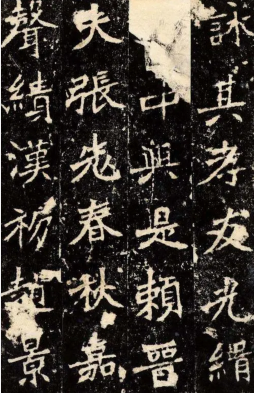 詠其孝友光緝
中興是賴晉
大張老春秋嘉
聲績漢初趙景